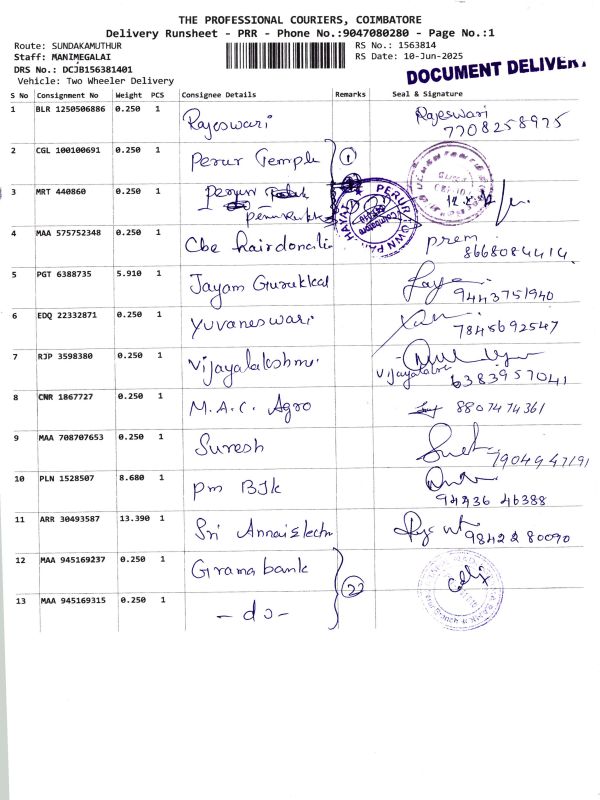 THE PROFESSIONAL COURIERS, COIMBATORE
Delivery Runsheet - PRR - Phone No.:9047080280 - Page No.:1
Route: SUNDAKAMUTHUR RS No.: 1563814
Staff: MANIMEGALAI RS Date: 10-Jun-2025
DRS No.: DCJB156381401 DOCUMENT DELIVERY
Vehicle: Two Wheeler Delivery
S No Consignment No Weight PCS Consignee Details Remarks Seal & Signature
1 BLR 1250506886 0.250 1 Rajeswari Rajeswari
7708258975
2 CGL 100100691 0.250 1 Perur Temple 1
3 MRT 440860 0.250 1 Perur
PERUR TOWN
Coimbatore
4 MAA 575752348 0.250 1 Cbe hairdonati prem
8668084414
5 PGT 6388735 5.910 1 Jayam Gurukkal Jaya
9443751940
6 EDQ 22332871 0.250 1 Yuvaneswari
7845692547
7 RJP 3598380 0.250 1 Vijayalakshmi
Vijayalaksh 6383957041
8 CNR 1867727 0.250 1 M.A.C. Agro 8807474361
9 MAA 708707653 0.250 1 Suresh
7904947191
10 PLN 1528507 8.680 1 Pm BJk
94436 46388
11 ARR 30493587 13.390 1 Sri Annai Electn
98422 80090
12 MAA 945169237 0.250 1 Grama bank 2
13 MAA 945169315 0.250 1 - do -